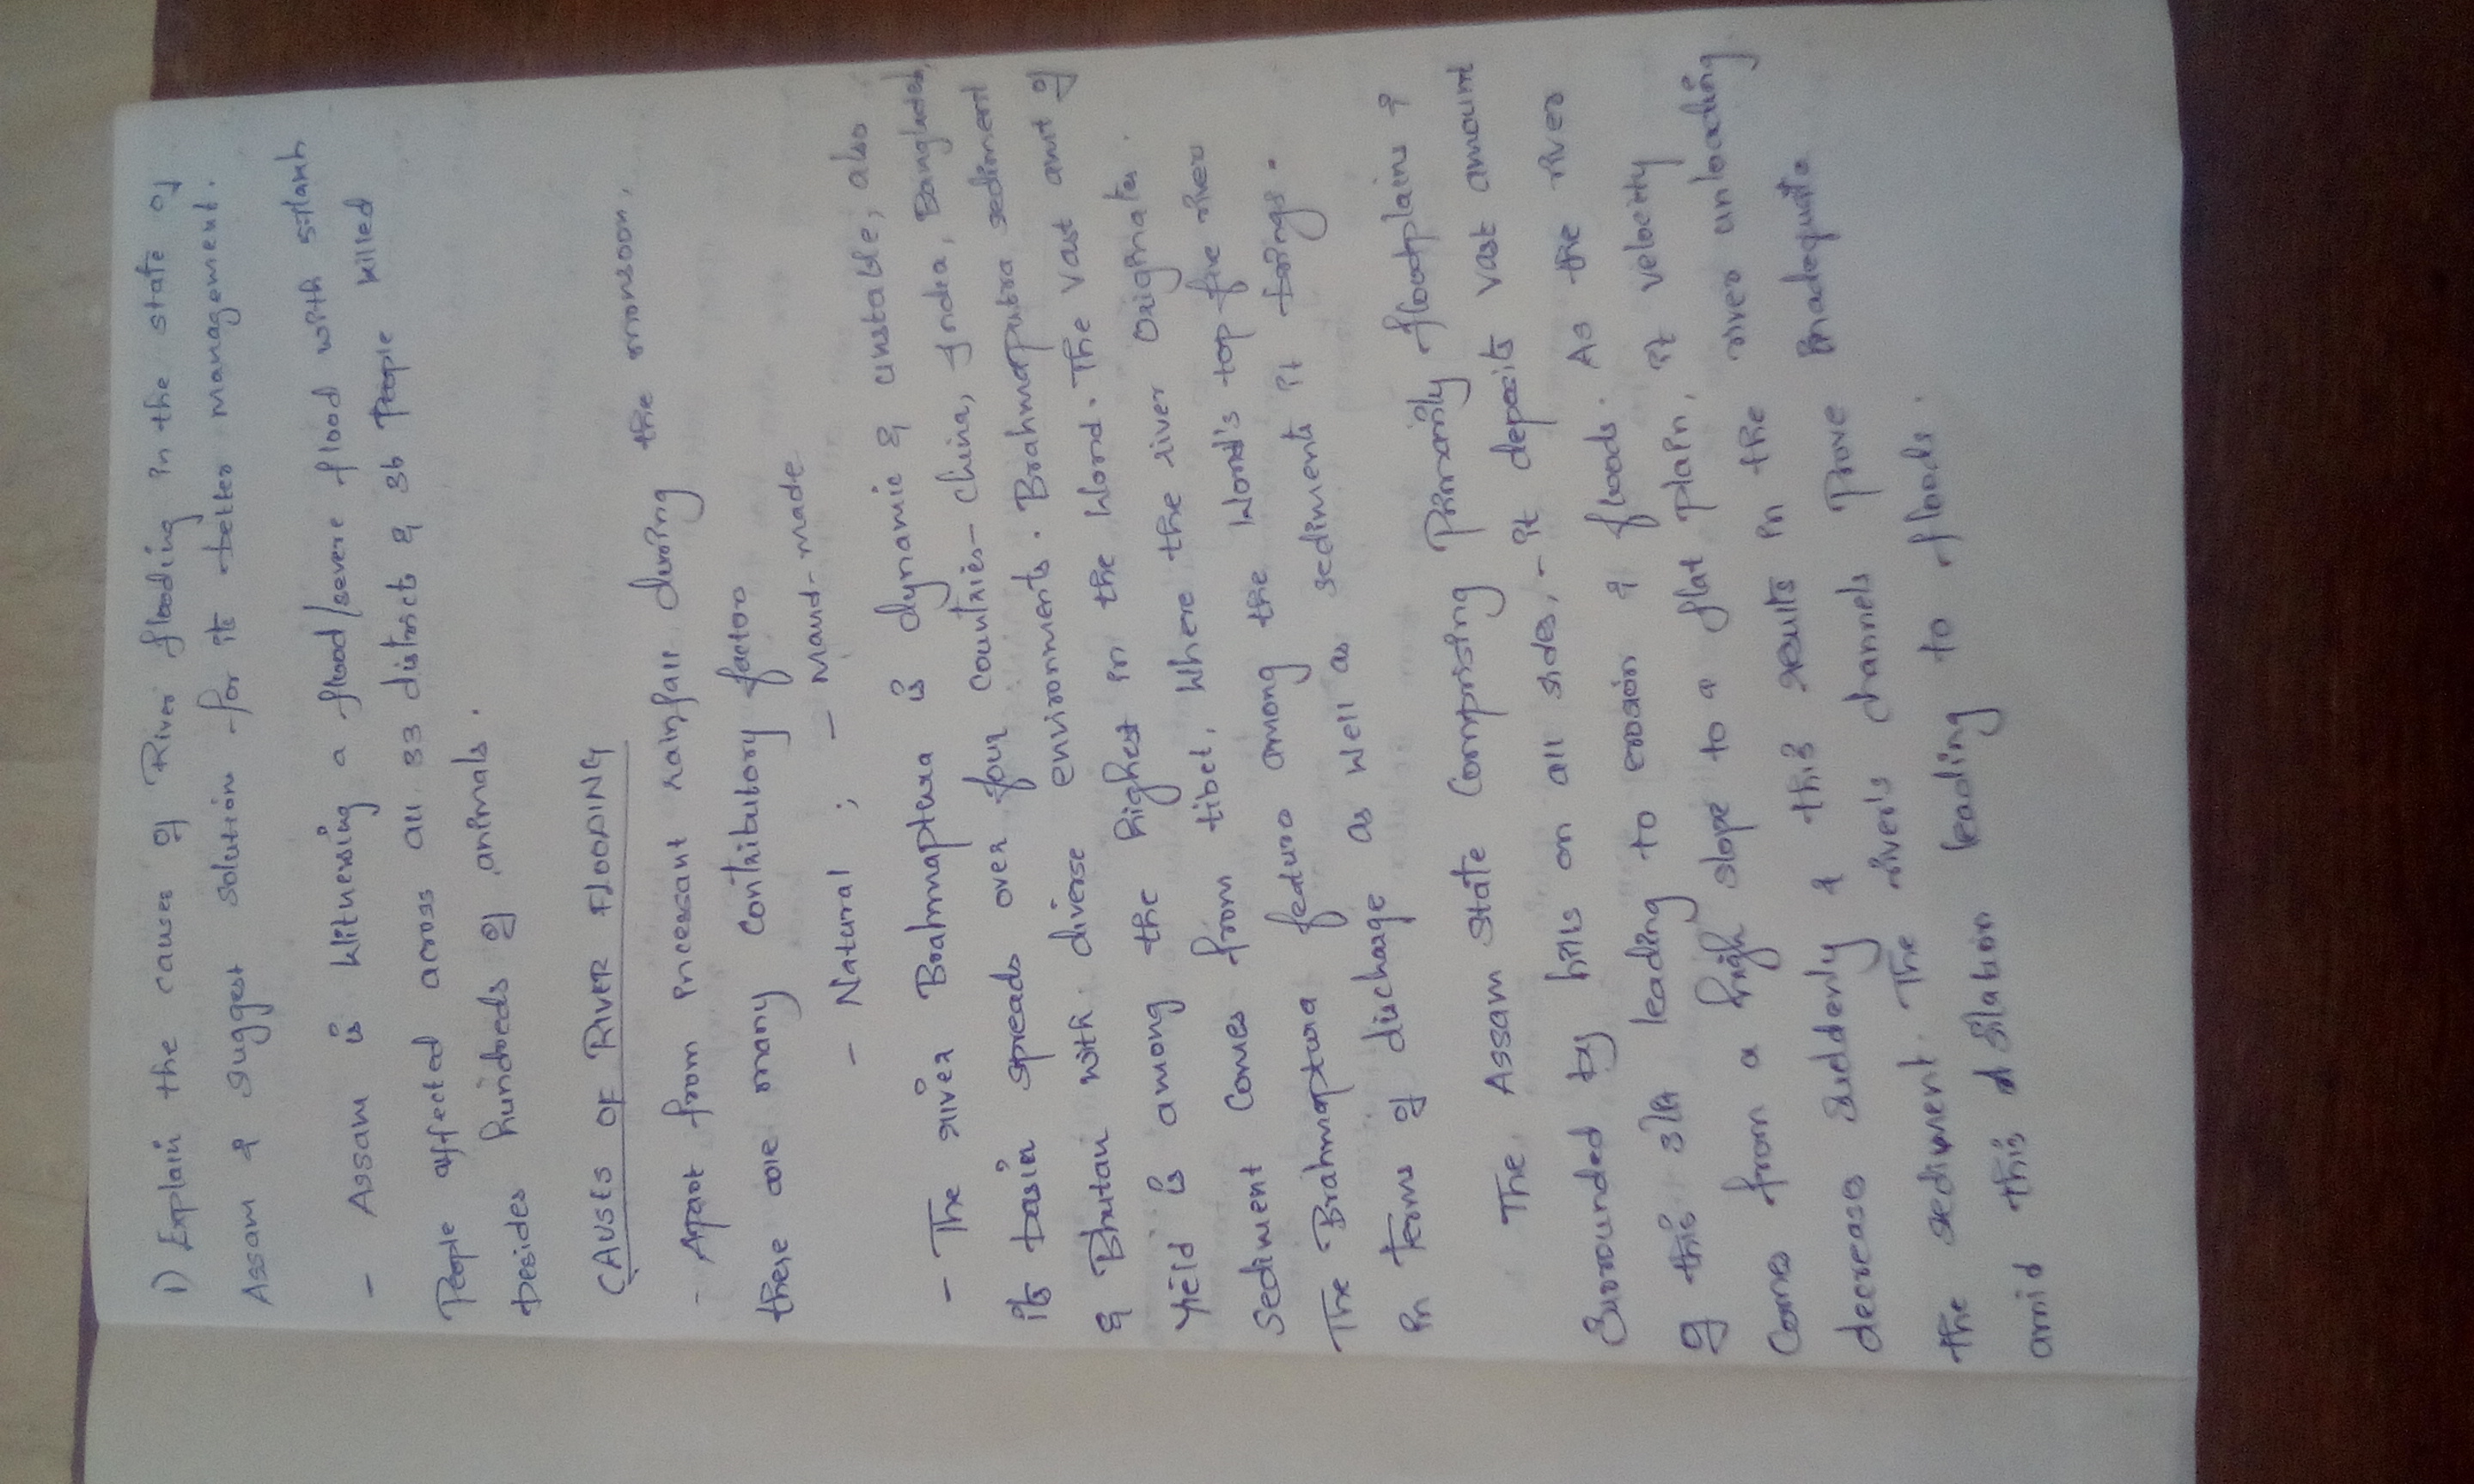 1) Explain the causes of River flooding in the state of
Assam & suggest solution for it better management.
- Assam is witnessing a flood/severe flood with 57lakh
People affected across all 33 district & 36 People killed
besides hundreds of animals.
CAUSES OF RIVER FLOODING
- Apart from incessant rainfall during the monsoon,
there are many contributory factors
- Natural ; - Mand-made
- The river Brahmaptura is dynamic & unstable; also
its basin spreads over four countries- china, India, Bangladesh,
& Bhutan with diverse environments. Brahmaputra sediment
yield is among the highest in the word. The vast amt of
Sediment comes from tibet, where the river Originates.
The Brahmaptura featurs among the Word's top five river
in terms of discharge as well as sediments it brings.
The Assam state Comprising Primarily floodplains &
Surrounded by hills on all sides, - it deposits vast amount
of this silt leading to erosion & floods. As the river
comes from a high slope to a flat plain, it velocity
decreases suddenly & this results in the river unloading
the sediment. The river's channels Prove inadequate
amid this siltation leading to floods.